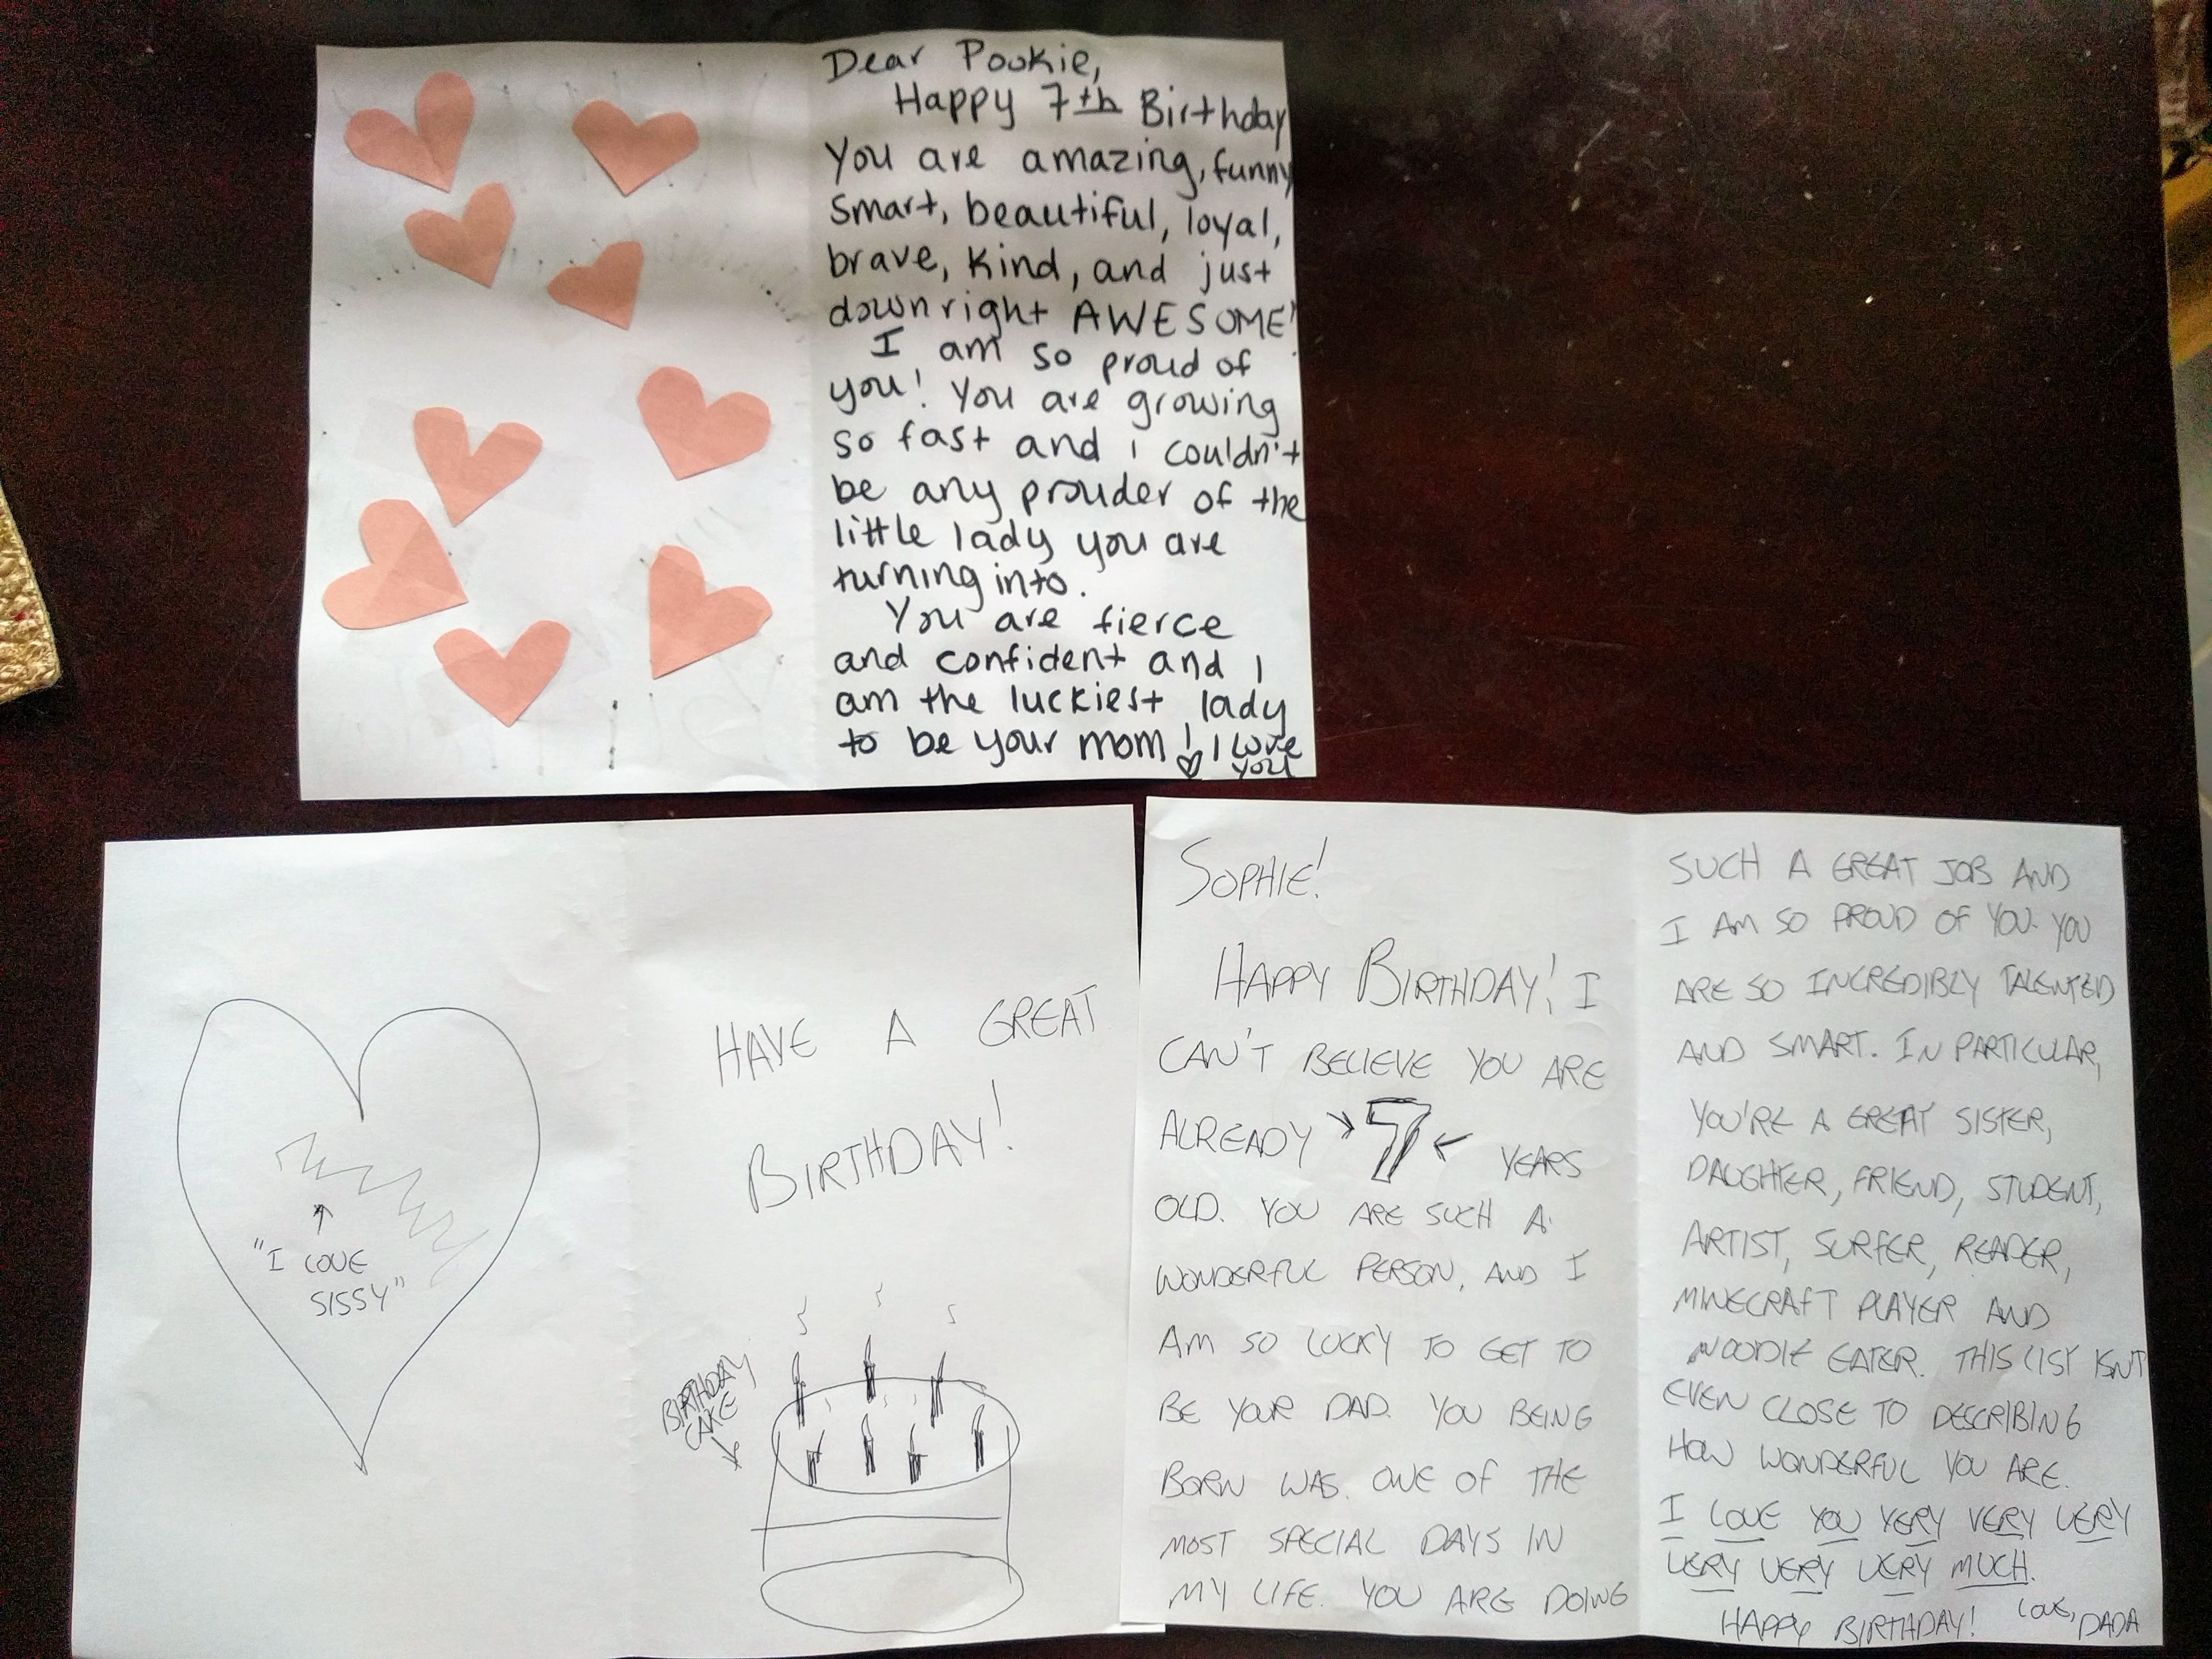 Dear Pookie,
Happy 7th Birthday
You are amazing, funny
smart, beautiful, loyal,
brave, kind, and just
downright AWESOME!
I am so proud of
you! You are growing
so fast and I couldn't
be any prouder of the
little lady you are
turning into.
You are fierce
and confident and I
am the luckiest lady
to be your mom! I love
you
"I LOVE
SISSY"
HAVE A GREAT
BIRTHDAY!
BIRTHDAY
CAKE
SOPHIE!
HAPPY BIRTHDAY! I
CAN'T BELIEVE YOU ARE
ALREADY 7 YEARS
OLD. YOU ARE SUCH A
WONDERFUL PERSON, AND I
AM SO LUCKY TO GET TO
BE YOUR DAD. YOU BEING
BORN WAS ONE OF THE
MOST SPECIAL DAYS IN
MY LIFE. YOU ARE DOING
SUCH A GREAT JOB AND
I AM SO PROUD OF YOU. YOU
ARE SO INCREDIBLY TALENTED
AND SMART. IN PARTICULAR,
YOU'RE A GREAT SISTER,
DAUGHTER, FRIEND, STUDENT,
ARTIST, SURFER, READER,
MINECRAFT PLAYER AND
NOODLE EATER. THIS LIST ISN'T
EVEN CLOSE TO DESCRIBING
HOW WONDERFUL YOU ARE.
I LOVE YOU VERY VERY VERY
VERY VERY VERY MUCH.
HAPPY BIRTHDAY! LOVE, DADA